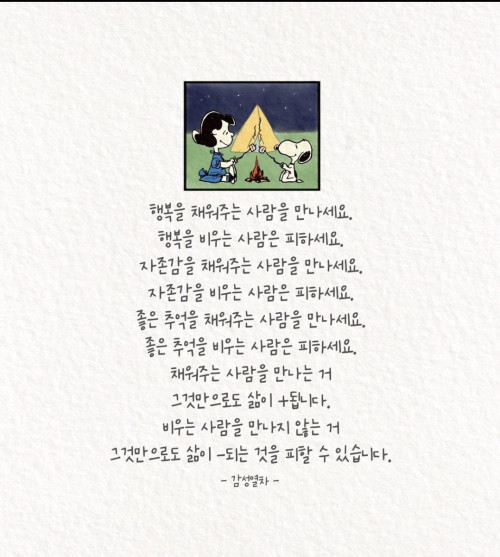 행복을 채워주는 사람을 만나세요.
행복을 비우는 사람은 피하세요.
자존감을 채워주는 사람을 만나세요.
자존감을 비우는 사람은 피하세요.
좋은 추억을 채워주는 사람을 만나세요.
좋은 추억을 비우는 사람은 피하세요.
채워주는 사람을 만나는 거
그것만으로도 삶이 +됩니다.
비우는 사람을 만나지 않는 거
그것만으로도 삶이 -되는 것을 피할 수 있습니다.
- 감성열차 -